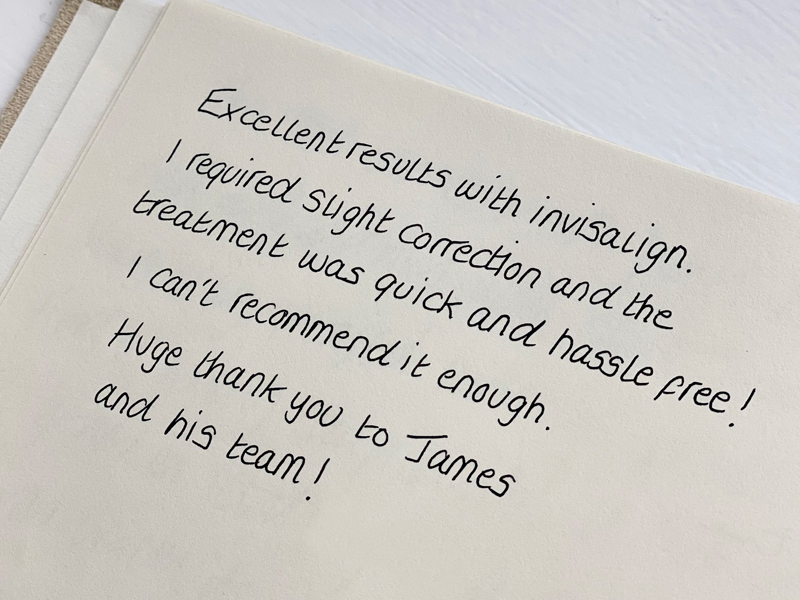 Excellent results with invisalign.
I required slight correction and the
treatment was quick and hassle free!
I can't recommend it enough.
Huge thank you to James
and his team!